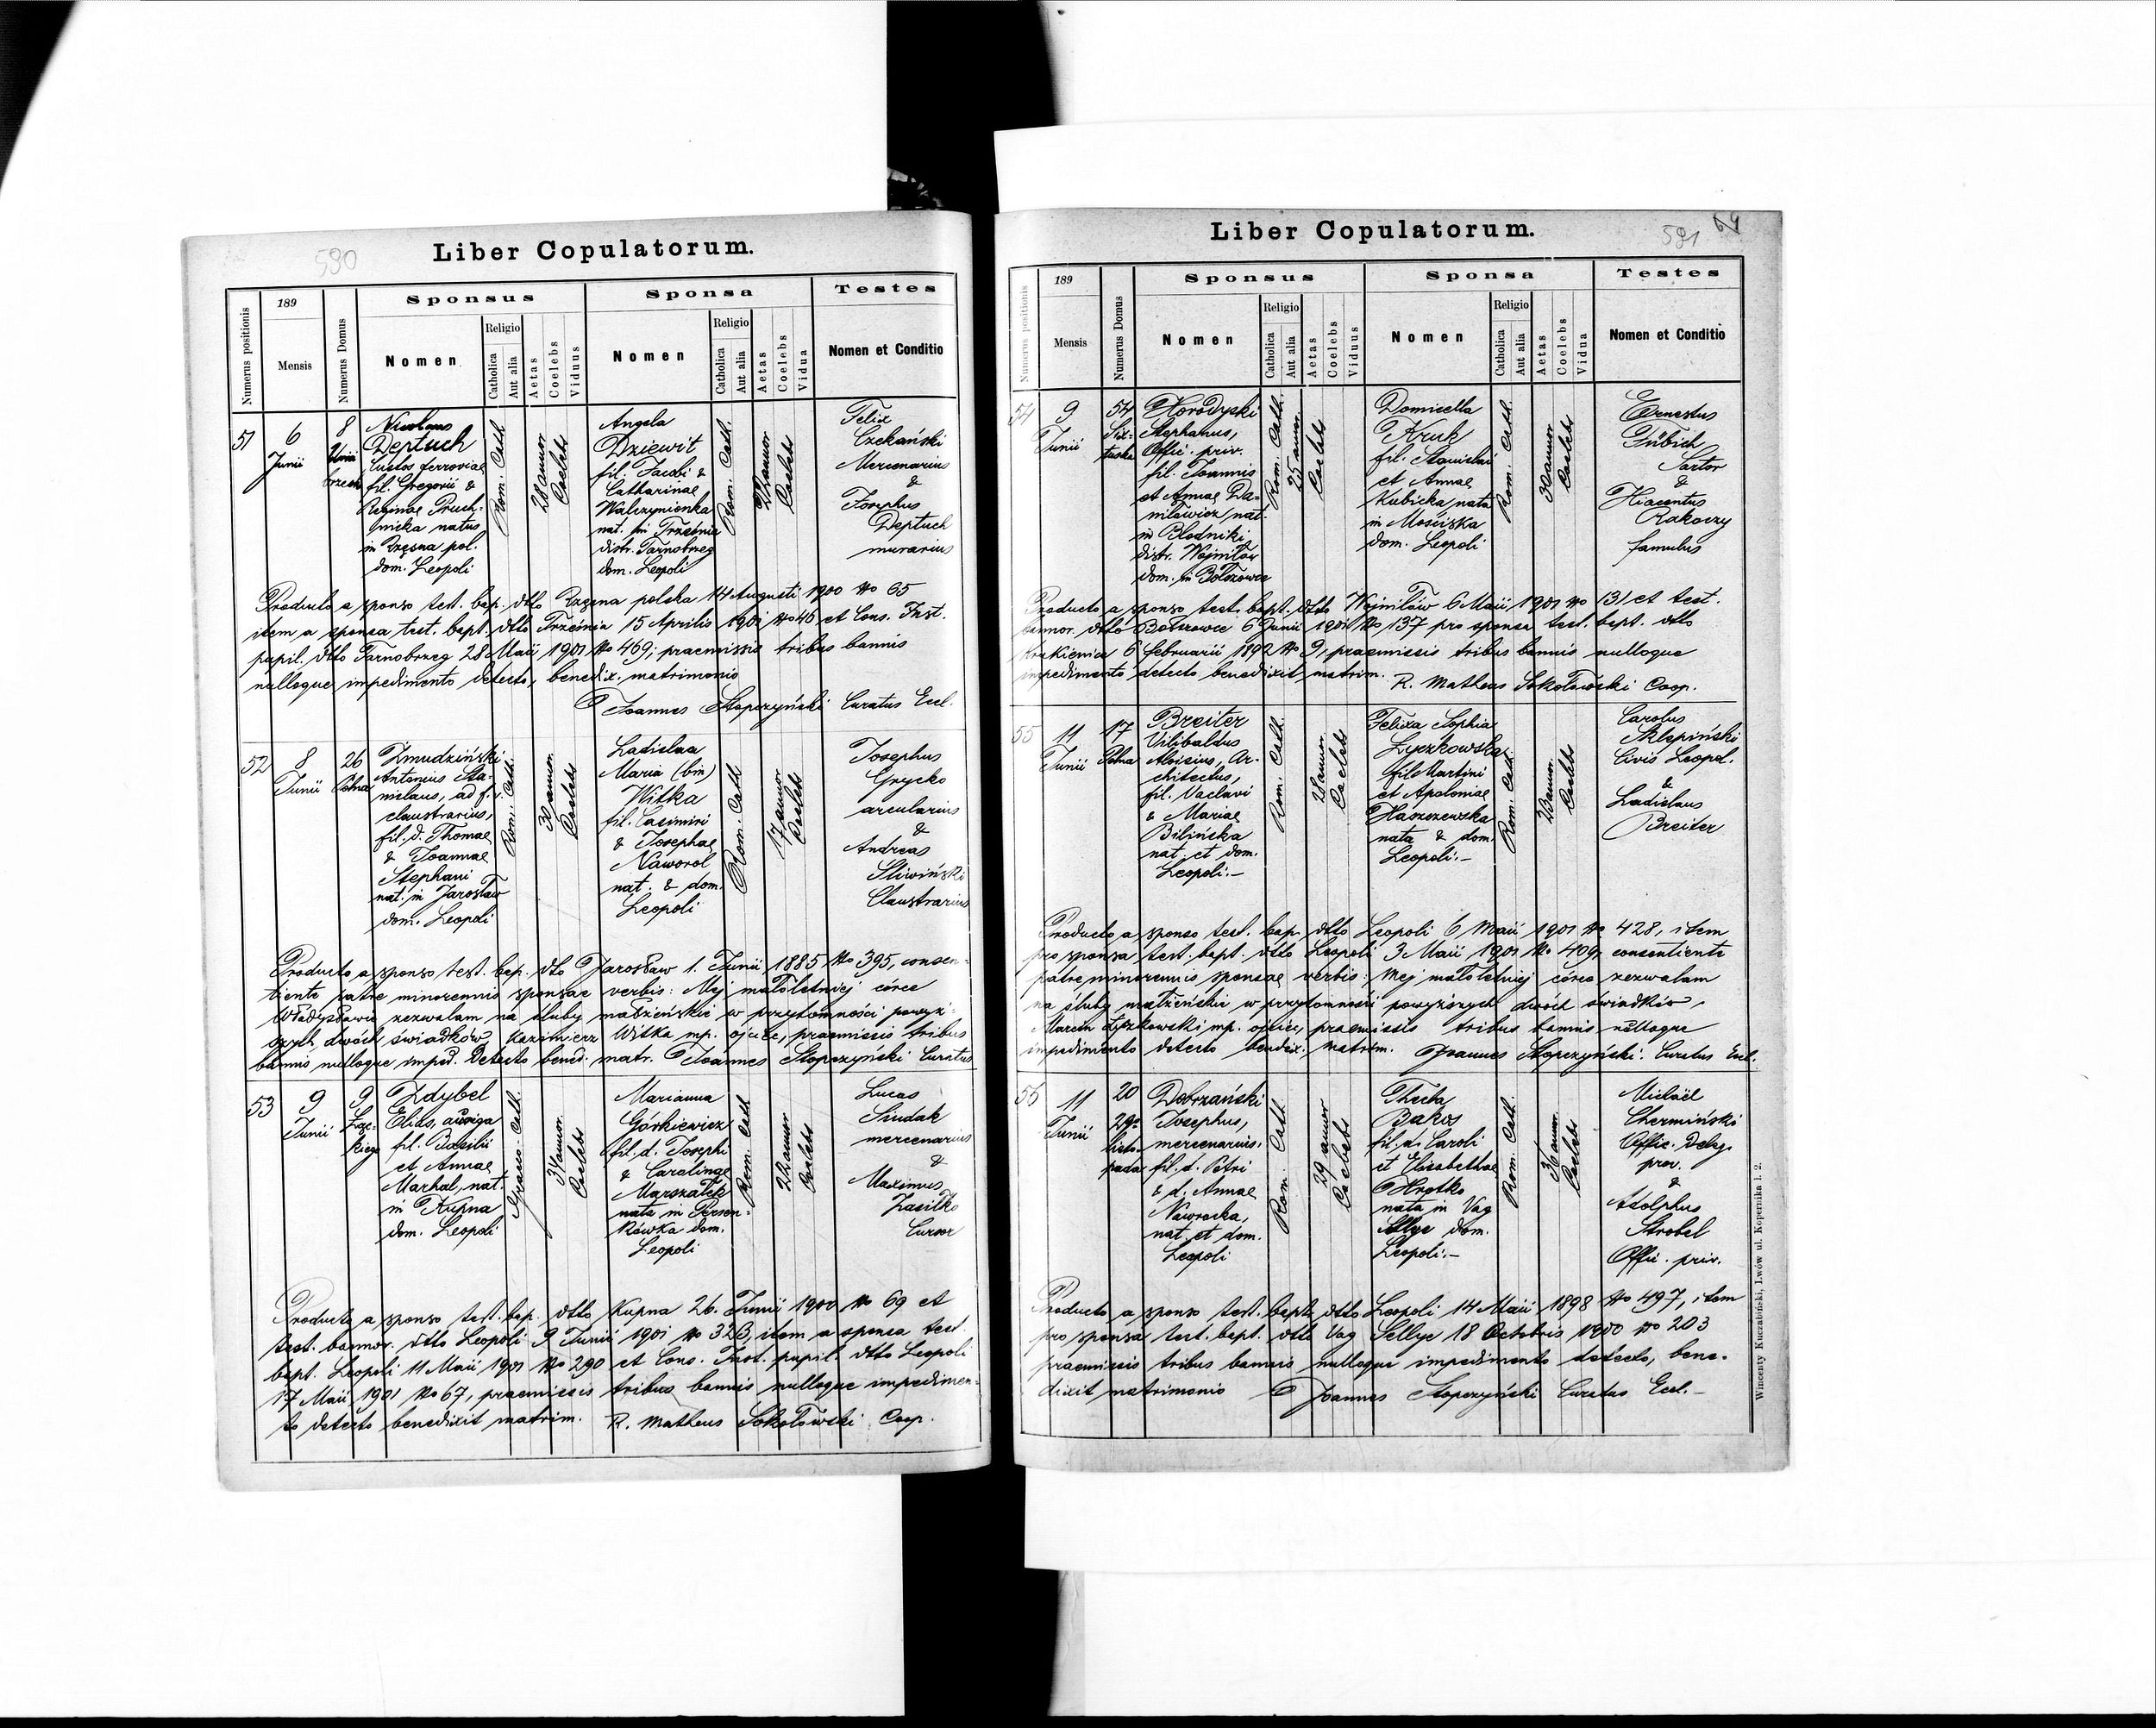 590
Liber Copulatorum.
Numerus positionis
189
Mensis
Numerus Domus
Sponsus
Nomen
Religio
Catholica
Aut alia
Aetas
Coelebs
Viduus
Sponsa
Nomen
Religio
Catholica
Aut alia
Aetas
Coelebs
Vidua
Testes
Nomen et Conditio
51
6
Junii
8
Unii
brzesk
Nicolaus
Deptuch
Custos ferroviae
fil. Gregorii &
Reginae Pruch-
nicka natus
in Rzęsna pol.
dom. Leopoli
Rom. Cath.
28 annor.
Coelebs
Angela
Dziewit
fil. Jacobi &
Catharinae
Walczynionka
nat. in Trześnia
distr. Tarnobrzeg
dom. Leopoli
Rom. Cath.
annor
Coelebs
Felix
Czekański
Mercenarius
&
Josephus
Deptuch
murarius
Producto a sponso test. bap. dtto Rzęsna polska 14 Augusti 1900 No 65
item a sponsa test. bapt. dtto Trześnia 15 Aprilis 1901 No 46 et Cons. Inst.
pupil. dtto Tarnobrzeg 28 Maii 1901 No 469; praemissis tribus bannis
nulloque impedimento detecto, benedix. matrimonio
Joannes Stopczyński Curatus Eccl.
52
8
Junii
26
Polna
Żmudziński
Antonius Sta-
nislaus, ad f. v.
claustrarius,
fil. d. Thomae
& Joannae
Stephani
nat. in Jarosław
dom. Leopoli
Rom. Cath.
30 annor.
Coelebs
Ladislaa
Maria (bin)
Witka
fil. Casimiri
& Josephae
Naworol
nat. & dom.
Leopoli
Rom. Cath
17 annor
Coelebs
Josephus
Grycko
arcularius
&
Andreas
Śliwiński
Claustrarius
Producto a sponso test. bap. dto Jarosław 1. Junii 1885 No 395, consen-
tiente patre minorennis sponsae verbis: Mej małoletniej córce
Władysławie zezwalam na śluby małżeńskie w przytomności powyż-
szych dwóch świadków, Kazimierz Witka mp. ojciec, praemissis tribus
bannis nulloque imped. detecto bened. matr. Joannes Stopczyński Curatus
53
9
Junii
9
Łąc-
kiego
Zdybel
Elias, auriga
fil. Basilii
et Annae
Marhal, nat.
in Kupna
dom. Leopoli
Graeco Cath.
34 annor.
Coelebs
Marianna
Górkiewicz
fil. d. Josephi
& Carolinae
Marszałek
nata in Persen-
kówka dom.
Leopoli
Rom. Cath
22 annor
Coelebs
Lucas
Siudak
mercenarius
&
Maximus
Zasilko
Cursor
Producto a sponso test. bap. dtto Kupna 26. Junii 1900 No 69 et
test. bannor. dtto Leopoli 9 Junii 1901 No 323, item a sponsa test.
bapt. Leopoli 11 Maii 1901 No 290 et Cons. Inst. pupil. dtto Leopoli
17 Maii 1901 No 67, praemissis tribus bannis nulloque impedimen-
to detecto benedixit matrim. R. Matheus Sokołowski Coop.
591
64
Liber Copulatorum.
Numerus positionis
189
Mensis
Numerus Domus
Sponsus
Nomen
Religio
Catholica
Aut alia
Aetas
Coelebs
Viduus
Sponsa
Nomen
Religio
Catholica
Aut alia
Aetas
Coelebs
Vidua
Testes
Nomen et Conditio
54
9
Junii
54
Six-
tuska
Horodyski
Stephanus,
Offic. priv.
fil. Joannis
et Annae Da-
nilowicz nat.
in Błodniki
distr. Wojniłów
dom. in Bołszowce
Rom. Cath.
25 annor.
Coelebs
Domicella
Kruk
fil. Stanislai
et Annae
Kubicka nata
in Mościska
dom. Leopoli
Rom. Cath.
30 annor
Coelebs
Ernestus
Fübich
Sartor
&
Hiacentus
Rakoczy
famulus
Producto a sponso test. bapt. dtto Wojniłów 6 Maii 1901 No 131 et test.
bannor. dtto Bołszowce 6 Junii 1901 No 137 pro sponsa test. bapt. dtto
Krakienica 6 februarii 1892 No 9, praemissis tribus bannis nulloque
impedimento detecto benedixit matrim.
R. Matheus Sokołowski Coop.
55
11
Junii
17
Polna
Breiter
Vilibaldus
Aloisius, Ar-
chitectus,
fil. Vaclavi
& Mariae
Bilińska
nat. et dom.
Leopoli.-
Rom. Cath.
28 annor.
Coelebs
Felixa Sophia
Łyczkowska
fil. Martini
et Apoloniae
Haszczewska
nata & dom.
Leopoli.-
Rom. Cath.
23 annor.
Coelebs
Carolus
Sklepiński
Civis Leopol.
&
Ladislaus
Breiter
Producto a sponso test. bap. dtto Leopoli 6 Maii 1901 No 428, item
pro sponsa test. bapt. dtto Leopoli 3 Maii 1901 No 409, consentiente
patre minorennis sponsae verbis: Mej małoletniej córce zezwalam
na śluby małżeńskie w przytomności powyższych dwóch świadków,
Marcin Łyczkowski mp. ojciec, praemissis tribus bannis nulloque
impedimento detecto bendix. matrim. Joannes Stopczyński. Curatus Eccl.
56
11
Junii
20
29o
listo-
pada
Dobrzański
Josephus,
mercenarius,
fil. d. Petri
& d. Annae
Nawrocka,
nat. et dom.
Leopoli
Rom. Cath.
29 annor
Coelebs
Thecla
Bakos
fil. d. Caroli
et Elisabethae
Hrotko
nata in Vag
Sellye dom.
Leopoli.-
Rom. Cath.
36 annor.
Coelebs
Michaël
Chermiński
Offic. Deleg.
prov.
&
Adolphus
Strobel
Offic. priv.
Producto a sponso test. bapt. dtto Leopoli 14 Maii 1898 No 497, item
pro sponsa test. bapt. dtto Vag Sellye 18 Octobris 1900 No 203
praemissis tribus bannis nulloque impedimento detecto, bene-
dixit matrimonio Joannes Stopczyński Curatus Eccl.-
Wincenty Kuczabiński, Lwów ul. Kopernika l. 2.